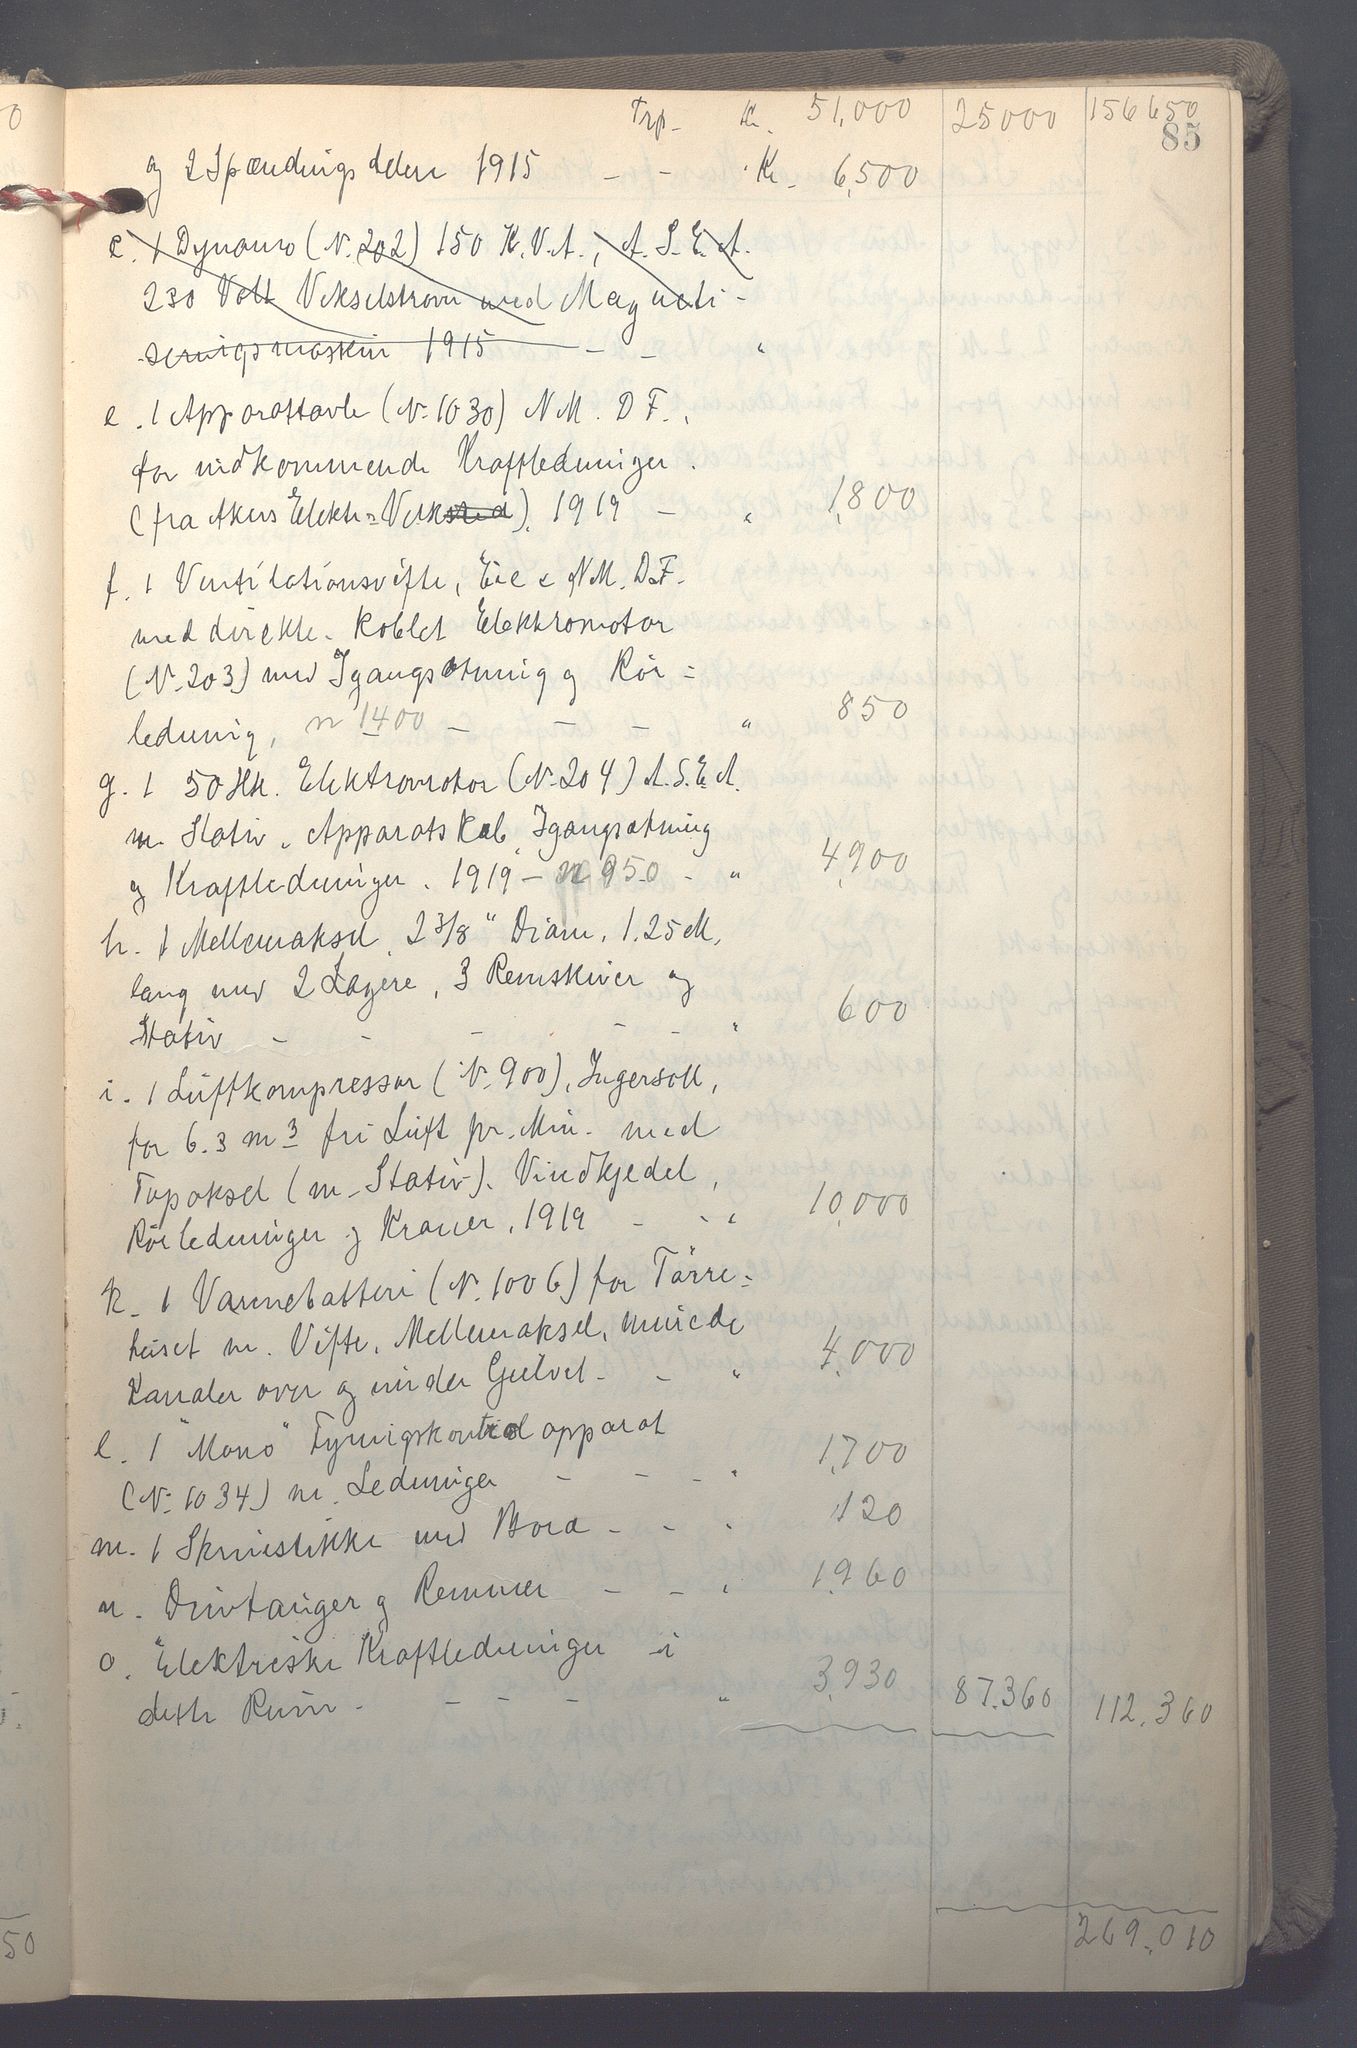 Trp. Kr. 51,000 25000 156650
85
og 2 Spændingsdelere 1915 - - Kr. 6,500
e. 1 Dynamo (N. 202) 150 K.V.A., A.S.E.A.
230 Volt Vekselstrøm med Magneti-
seringsmaskin 1915 - - "
e. 1 Apparattavle (N. 1030) N.M.D.F.,
for indkommende Kraftledninger.
(fra Akers Elektr. Verksted). 1919 - " 1,800
f. 1 Ventilationsvifte, Eie & N.M.D.F.
med direkte koblet Elektromotor
(N. 203) med Igangsætning og Rør-
ledning, n 1400 - - - " 850
g. 1 50 Hk. Elektromotor (N. 204) A.S.E.A.
m. Stativ, Apparatskab, Igangsætning
og Kraftledninger. 1919 - n 950 - " 4,900
h. 1 Mellemaksel 2 3/8" Diam. 1.25 M.
lang med 2 Lagere, 3 Remskiver og
Stativ - - - - - " 600
i. 1 Luftkompressor (N. 900), Ingersoll,
for 6.3 m3 fri Luft pr. Min. med
Tapaksel (m. Stativ). Vindkjedel,
Rørledninger og Kraner, 1919 - - " 10,000
k. 1 Varmebatteri (N. 1006) for Tørre-
huset m. Vifte, Mellemaksel, murede
Kanaler over og under Gulvet - - " 4,000
l. 1 "Mono" Fyringskontrol apparat
(N. 1034) m. Ledninger - - - " 1,700
m. 1 Skruestikke med Bord - - " 120
n. Drivtauger og Remmer - - " 1,960
o. Elektriske Kraftledninger i
dette Rum - - - - " 3,930 87.360 112.360
269.010
0
50